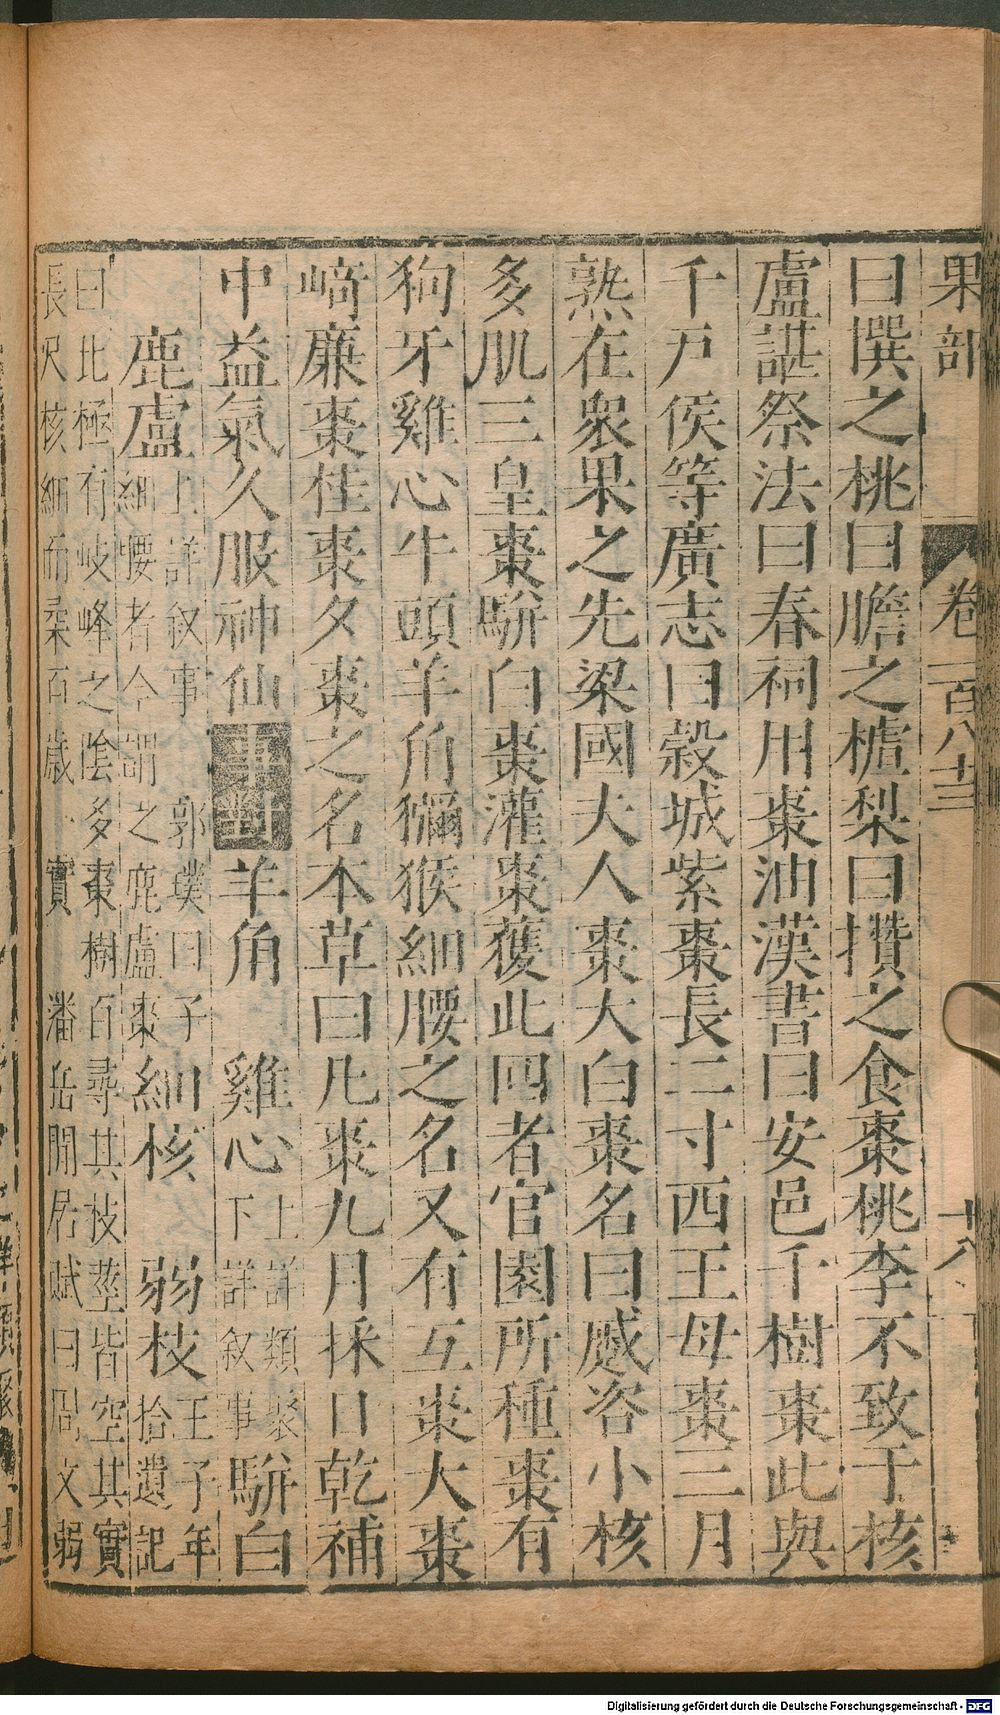 果部 卷一百八十三 十八
曰撰之桃曰膽之樝梨曰攢之食棗桃李不致于核
盧諶祭法曰春祠用棗油漢書曰安邑千樹棗此與
千戸侯等廣志曰穀城紫棗長二寸西王母棗三月
熟在衆果之先梁國夫人棗大白棗名曰蹙咨小核
多肌三皇棗駢白棗灌棗獲此四者官園所種棗有
狗牙雞心牛頭羊角獼猴細腰之名又有互棗大棗
崎廉棗桂棗夕棗之名本草曰凡棗九月採日乾補
中益氣久服神仙事對羊角 雞心上詳類聚下詳叙事駢白
鹿盧上詳叙事 郭璞曰子細腰者今謂之鹿盧棗細核 弱枝王子年拾遺記
曰北極有岐峰之陰多棗樹百尋其枝莖皆空其實
長尺核細而柔百歲一實 潘岳閒居賦曰周文弱
Digitalisierung gefördert durch die Deutsche Forschungsgemeinschaft - DFG